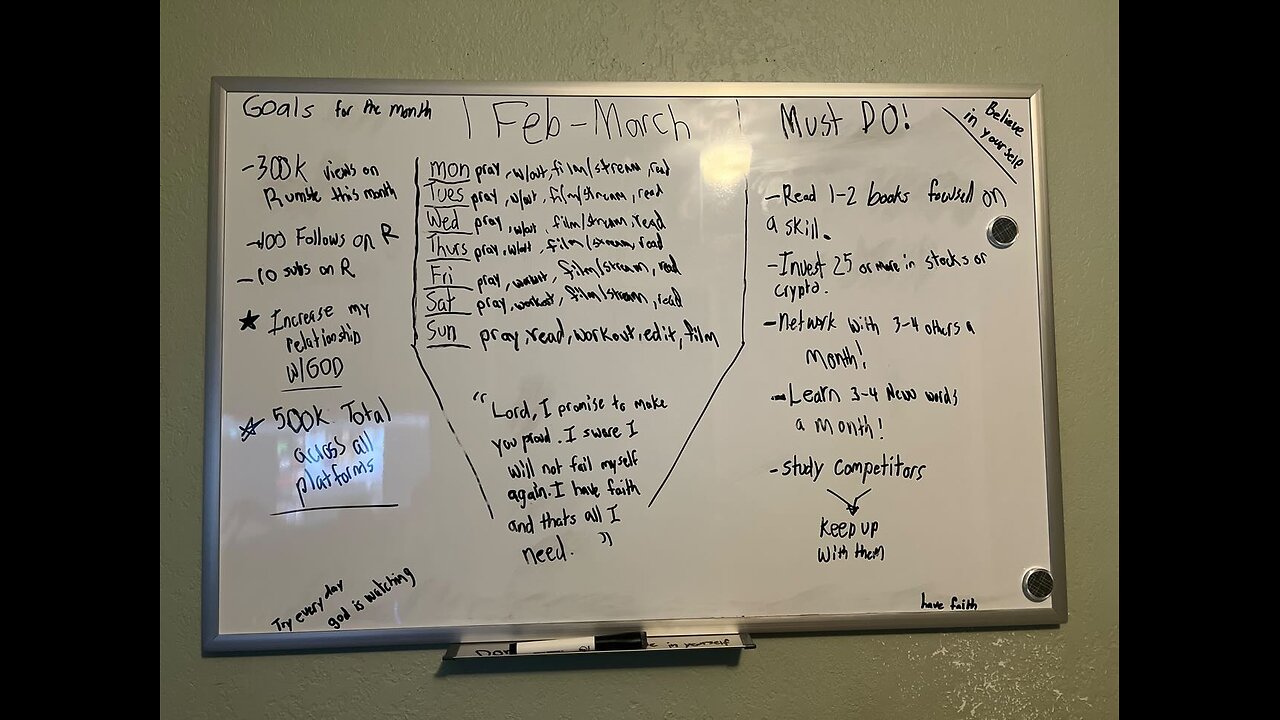 Goals for the month
-300k views on
Rumble this month
-100 Follows on R
-10 subs on R
★ Increase my
relationship
w/GOD
☆ 500k Total
across all
platforms
Try every day
god is watching
Feb-March
Mon pray, w/out, film/stream, read
Tues pray, w/out, film/stream, read
Wed pray, w/out, film/stream, read
Thurs pray, w/out, film/stream, read
Fri pray, workout, film/stream, read
Sat pray, workout, film/stream, read
Sun pray, read, workout, edit, film
"Lord, I promise to make
you proud. I sware I
will not fail myself
again. I have faith
and thats all I
need. "
Must DO!
Believe
in yourself
-Read 1-2 books focused on
a skill.
-Invest 25 or more in stocks or
crypto.
-network with 3-4 others a
month!
-Learn 3-4 New words
a month!
-study competitors
Keep up
with them
have faith
in yourself